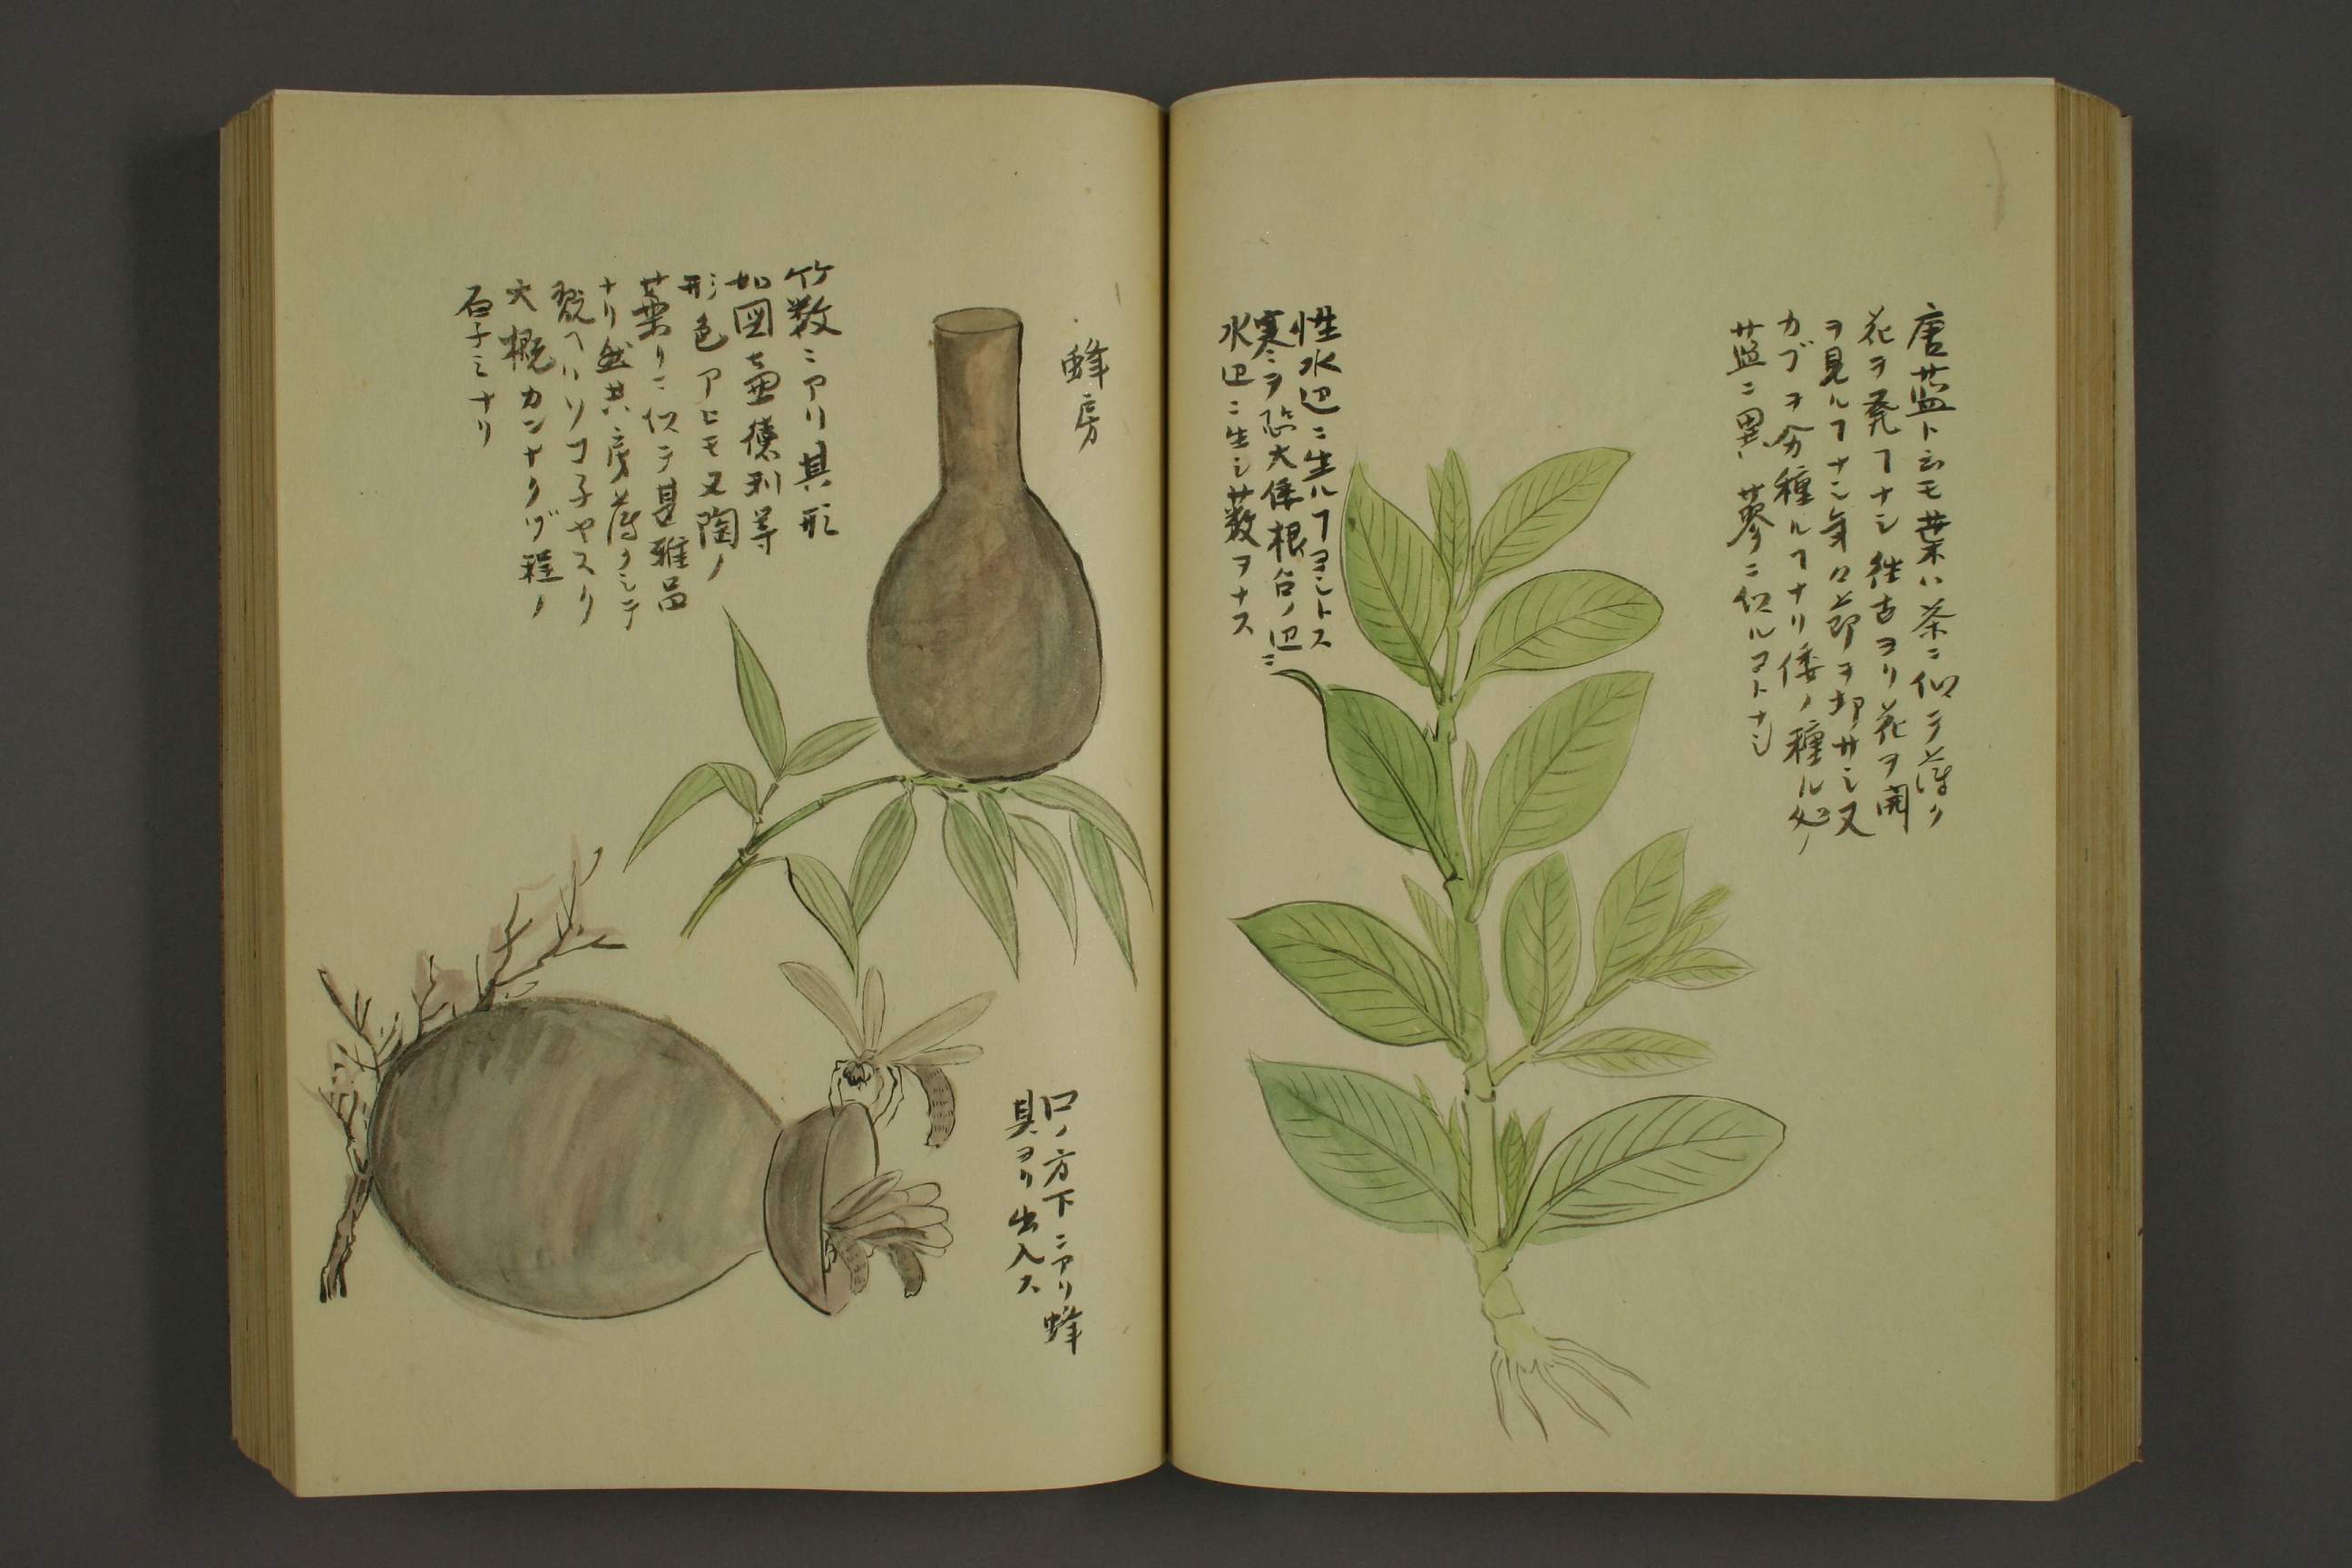 唐藍ト云モ葉ハ茶ニ似テ薄ク
花ヲ発ヿナシ往古ヨリ花ヲ開
ヲ見ルヿナシ年々節ヲ却サシ又
カブヲ分種ルヿナリ倭ノ種ル処ノ
藍ニ異蓼ニ似ルコトナシ
性水辺ニ生ルヿヨシトス
寒ヲ恐大倭根谷ノ辺ニ
水辺ニ生シ藪ヲナス
蜂房
竹数ニアリ其形
如図壷徳利等
形色アヒモ又陶ノ
薬リニ似テ甚雅品
ナリ然共房薄クシテ
翫ヘハソコ子ヤスク
大概カンナクヅ程ノ
石子ミナリ
口ノ方下ニアリ蜂
具ヨリ出入ス